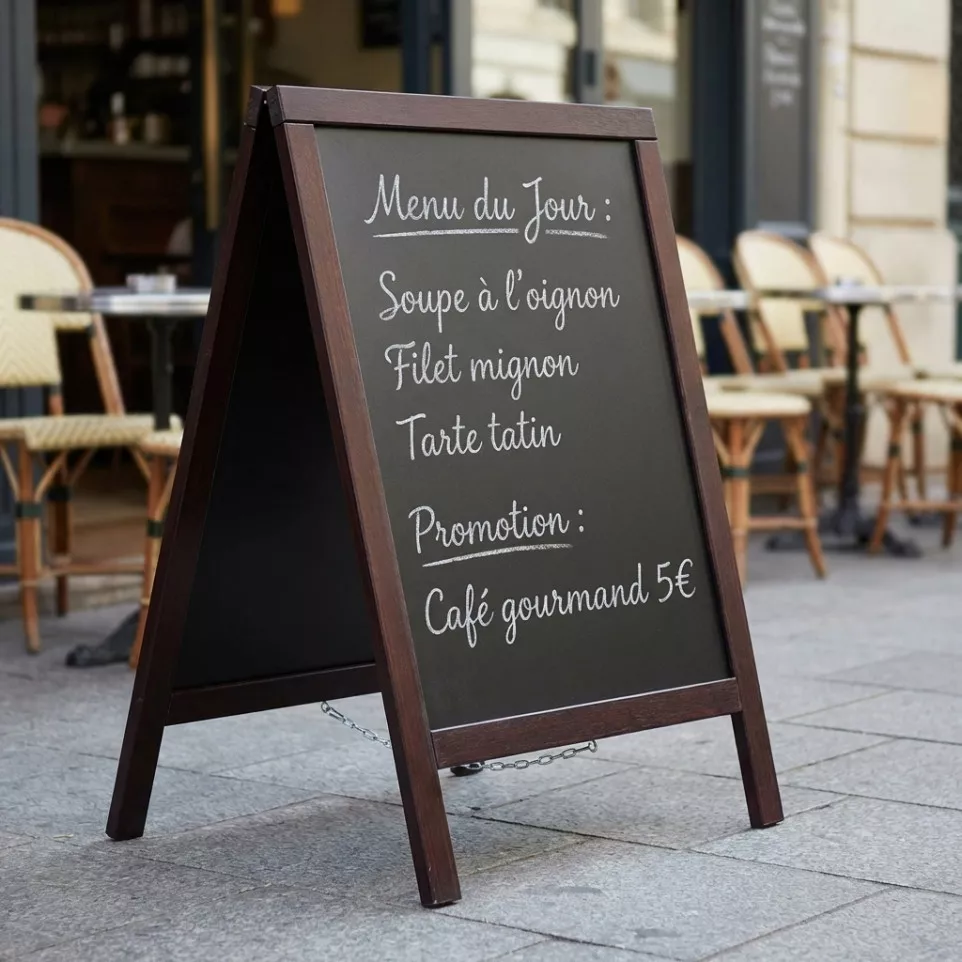 Menu du Jour :
Soupe à l'oignon
Filet mignon
Tarte tatin
Promotion :
Café gourmand 5€